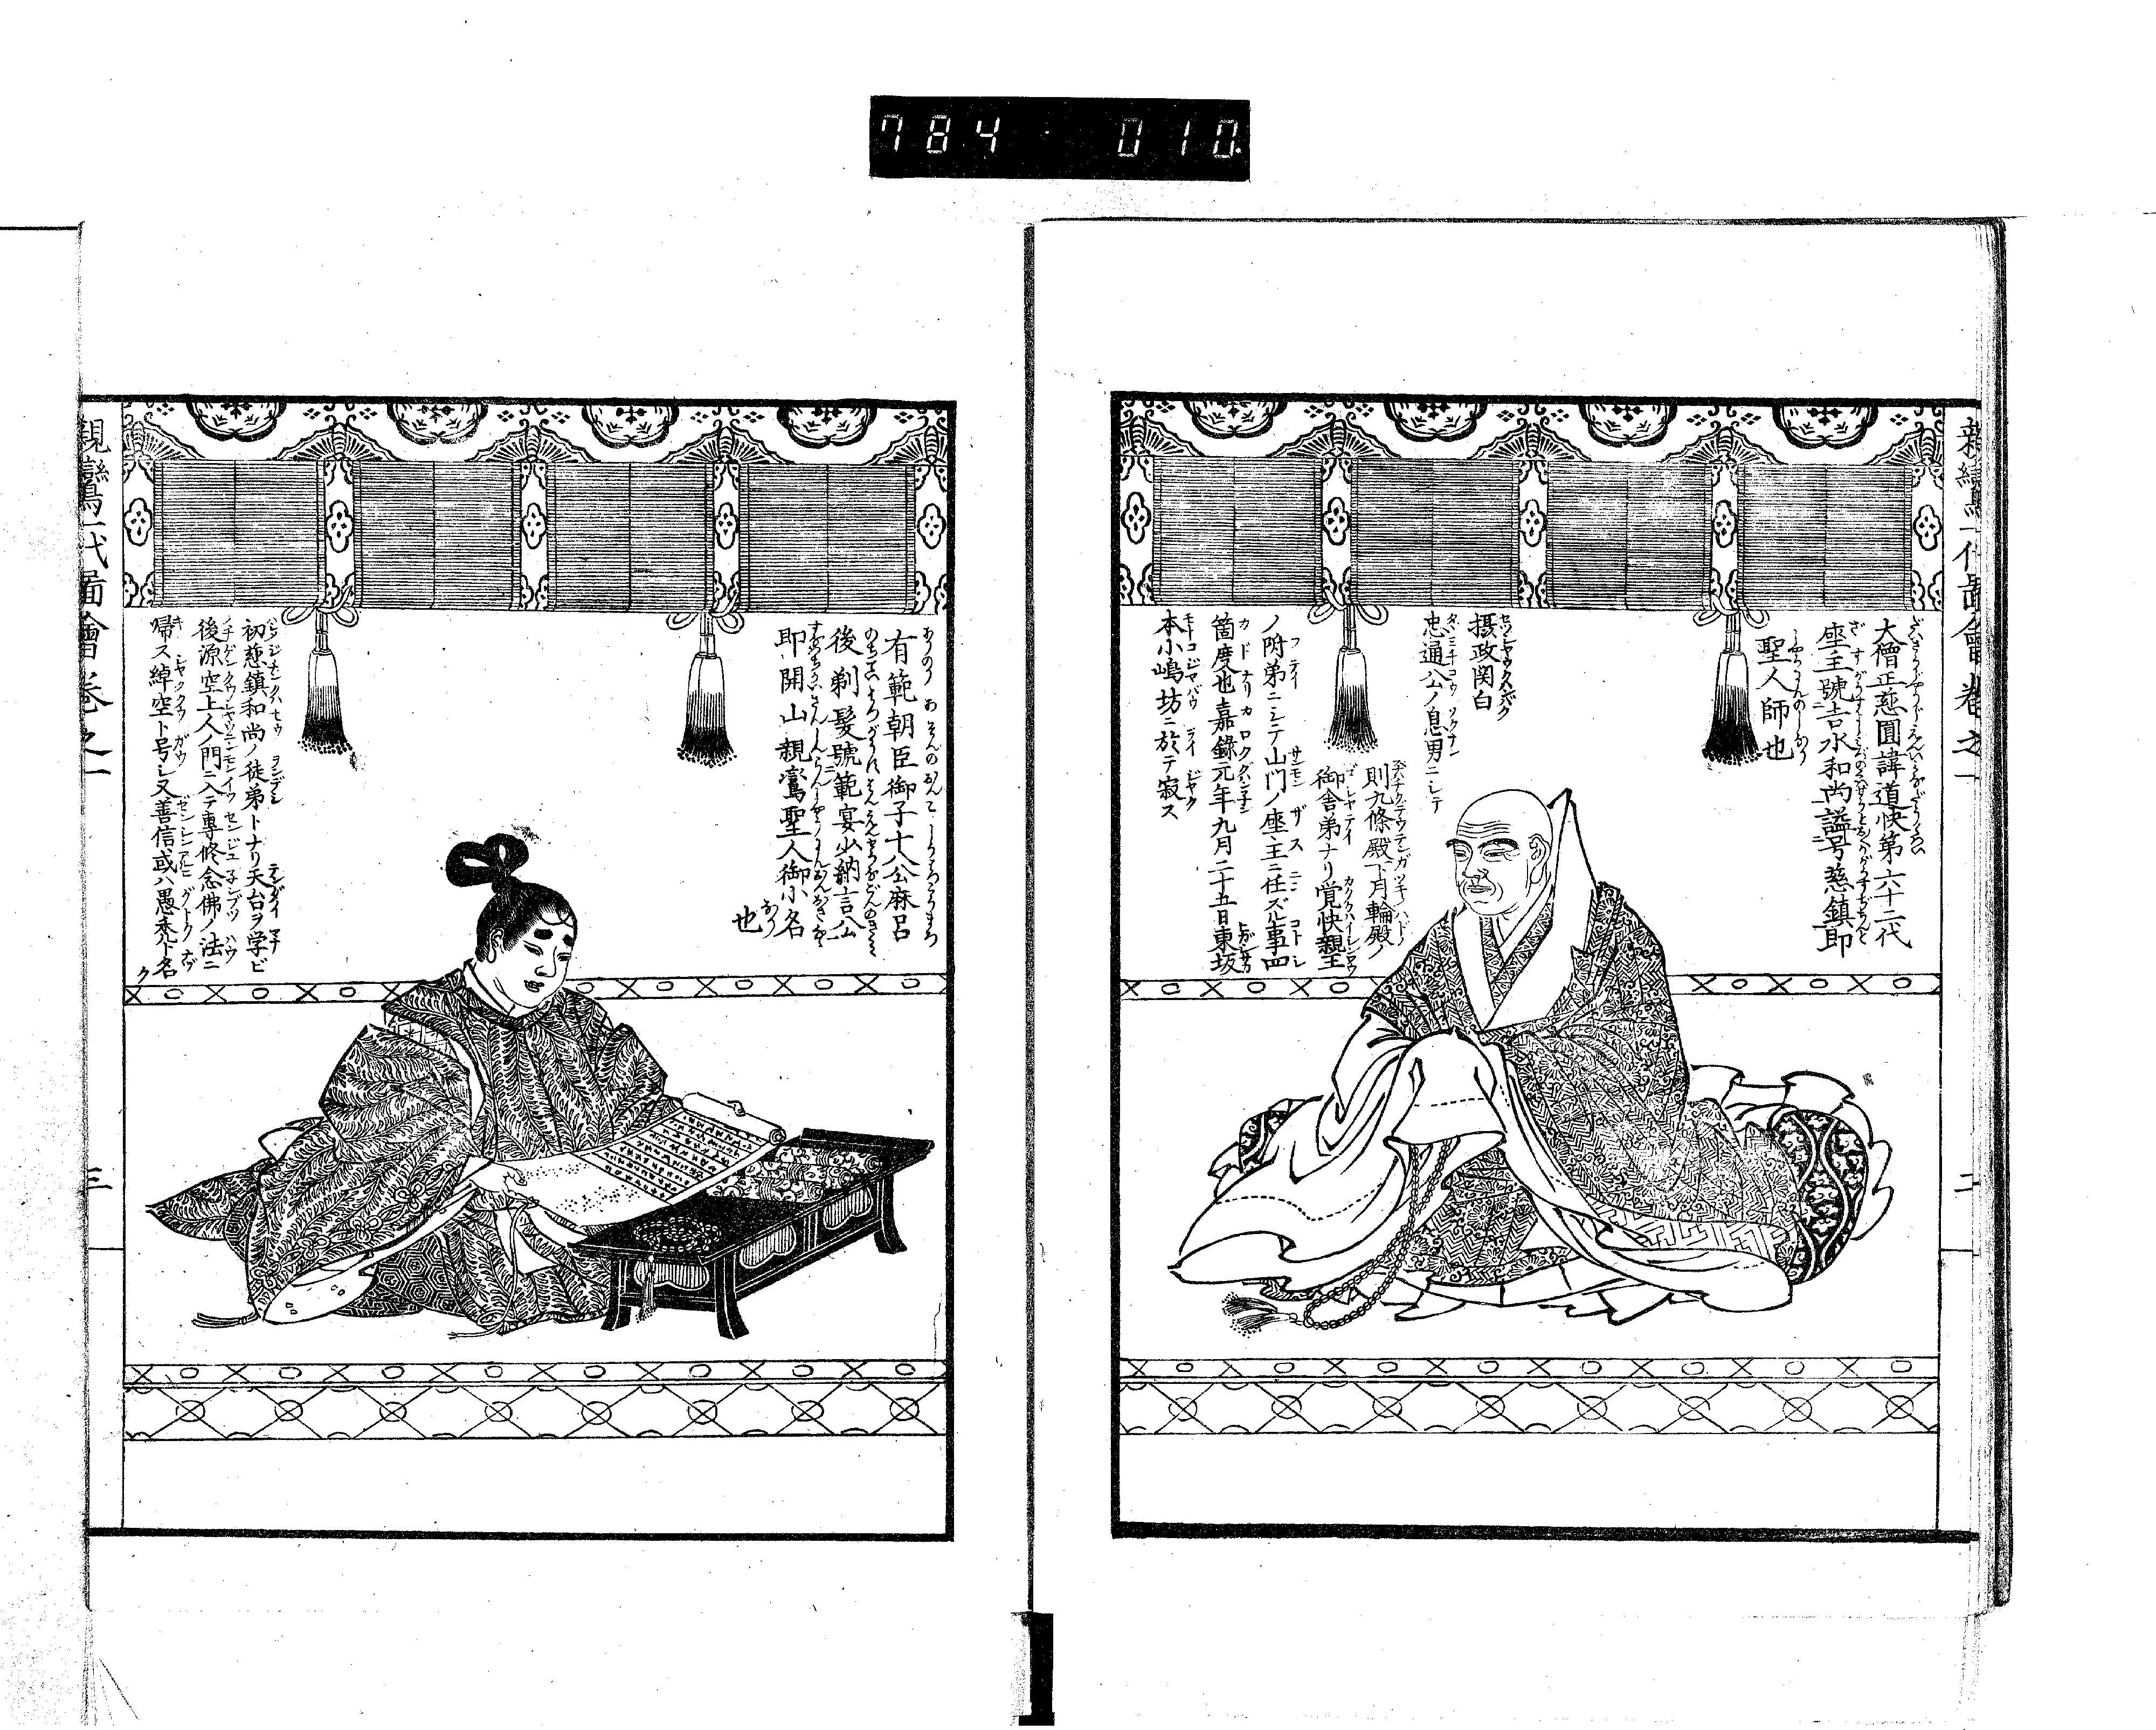 784 010
親鸞一代圖會巻之一
二
大僧正慈圓諱道快第六十二代
座主號吉水和尚謚号慈鎮即
聖人師也
摂政関白
忠通公ノ息男ニシテ
則九條殿下月輪殿ノ
御舎弟ナリ覚快親王
ノ附弟ニシテ山門ノ座主ニ任ズル事四
箇度也嘉録元年九月二十五日東坂
本小嶋坊ニ於テ寂ス
有範朝臣御子十八公麻呂
後剃髪號範宴少納言公
即開山親鸞聖人御小名
也
初慈鎮和尚ノ徒弟トナリ天台ヲ学ビ
後源空上人ノ門ニ入テ專修念佛ノ法ニ
帰ス綽空ト号シ又善信或ハ愚禿ト名ク
親鸞一代圖會巻之一
三